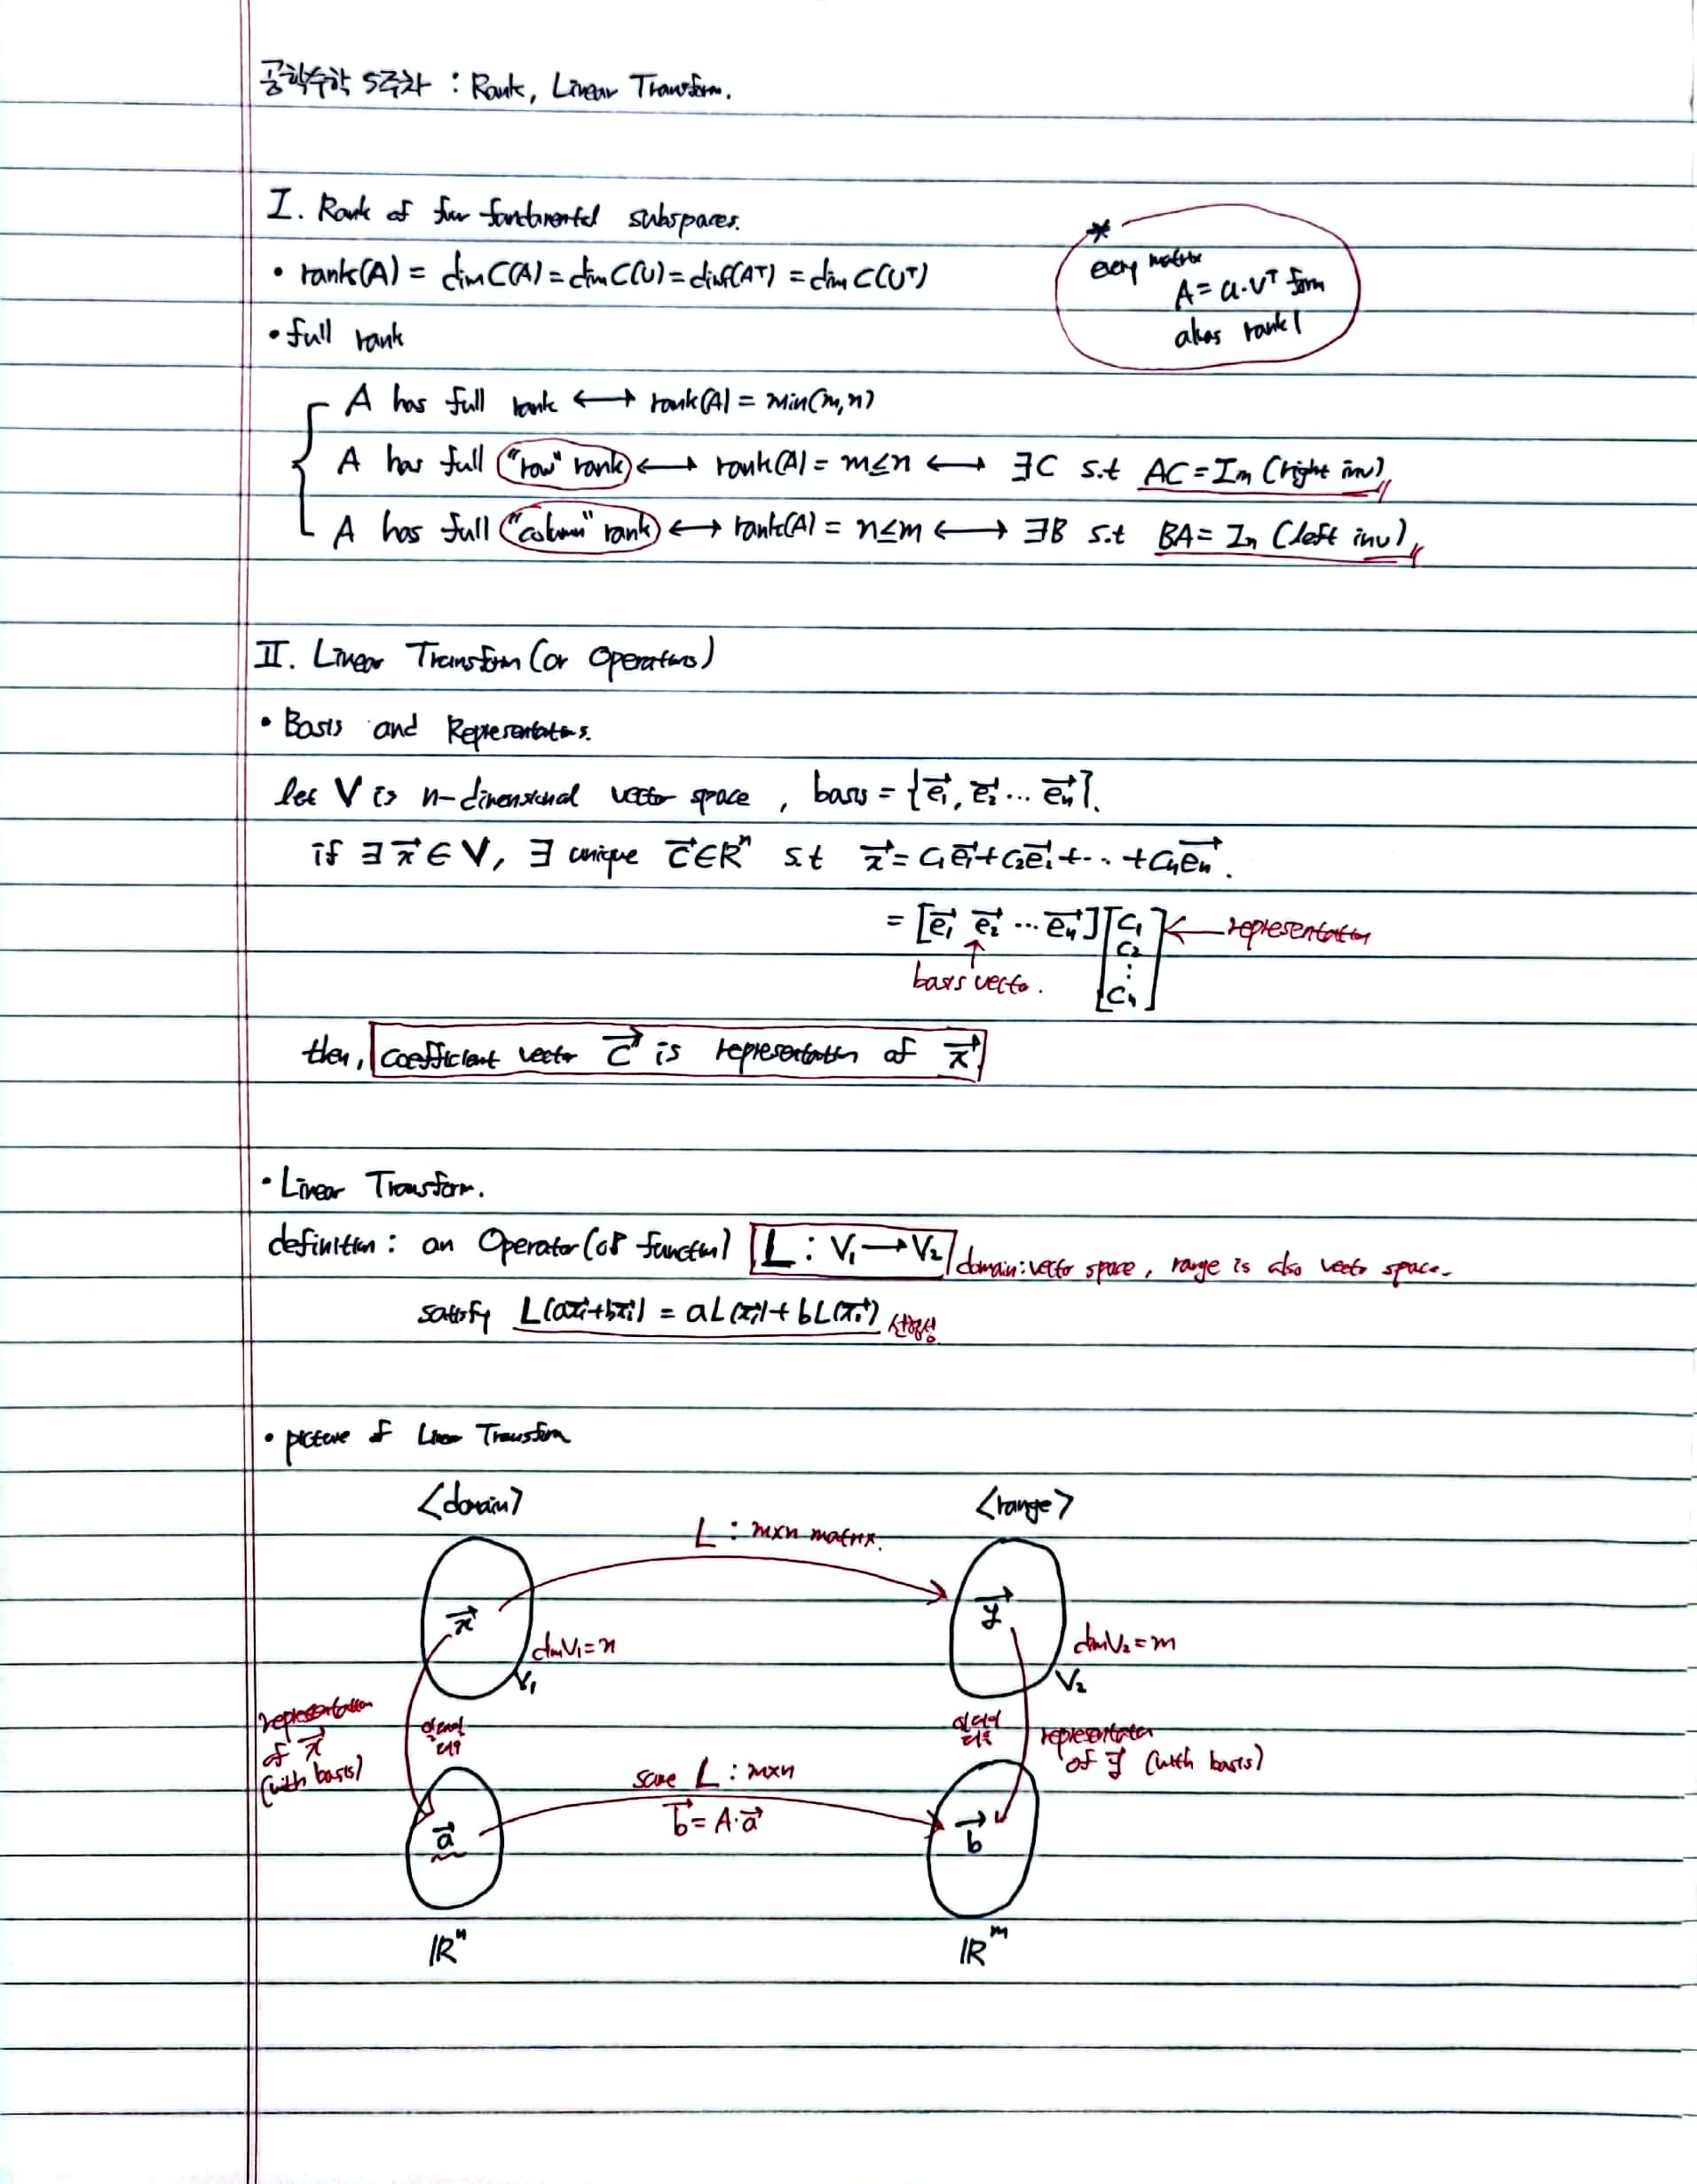 공학수학 5주차 : Rank, Linear Transform.
I. Rank of four fundamental subspaces.
• rank(A) = dim C(A) = dim C(U) = dim C(Aᵀ) = dim C(Uᵀ)
*
every matrix
A = u·vᵀ form
rank 1
• full rank
A has full rank ⟷ rank(A) = min(m,n)
A has full "row" rank ⟷ rank(A) = m≤n ⟷ ∃C s.t AC = Im (right inv)
A has full "column" rank ⟷ rank(A) = n≤m ⟷ ∃B s.t BA = In (left inv)
II. Linear Transform (or Operators)
• Basis and Representations.
let V is n-dimensional vector space , basis = {e₁⃗, e₂⃗ ... eₙ⃗}.
if ∃ x⃗ ∈ V, ∃ unique c⃗ ∈ Rⁿ s.t x⃗ = c₁e₁⃗ + c₂e₂⃗ + ... + cₙeₙ⃗.
= [e₁⃗ e₂⃗ ... eₙ⃗] [c₁ c₂ ⋮ cₙ] ← representation
↑
basis vector.
then, coefficient vector c⃗ is representation of x⃗.
• Linear Transform.
definition : an Operator (or function) L : V₁ → V₂ domain : vector space, range is also vector space.
satisfy L(ax₁⃗+bx₂⃗) = aL(x₁⃗) + bL(x₂⃗) 선형성
• picture of Linear Transform
<domain> <range>
L : m×n matrix.
x⃗ y⃗
dim V₁ = n dim V₂ = m
V₁ V₂
representation of x⃗ (with basis)
일대일 대응
일대일 대응
representation of y⃗ (with basis)
same L : m×n
b⃗ = A·a⃗
a⃗ b⃗
ℝⁿ ℝᵐ